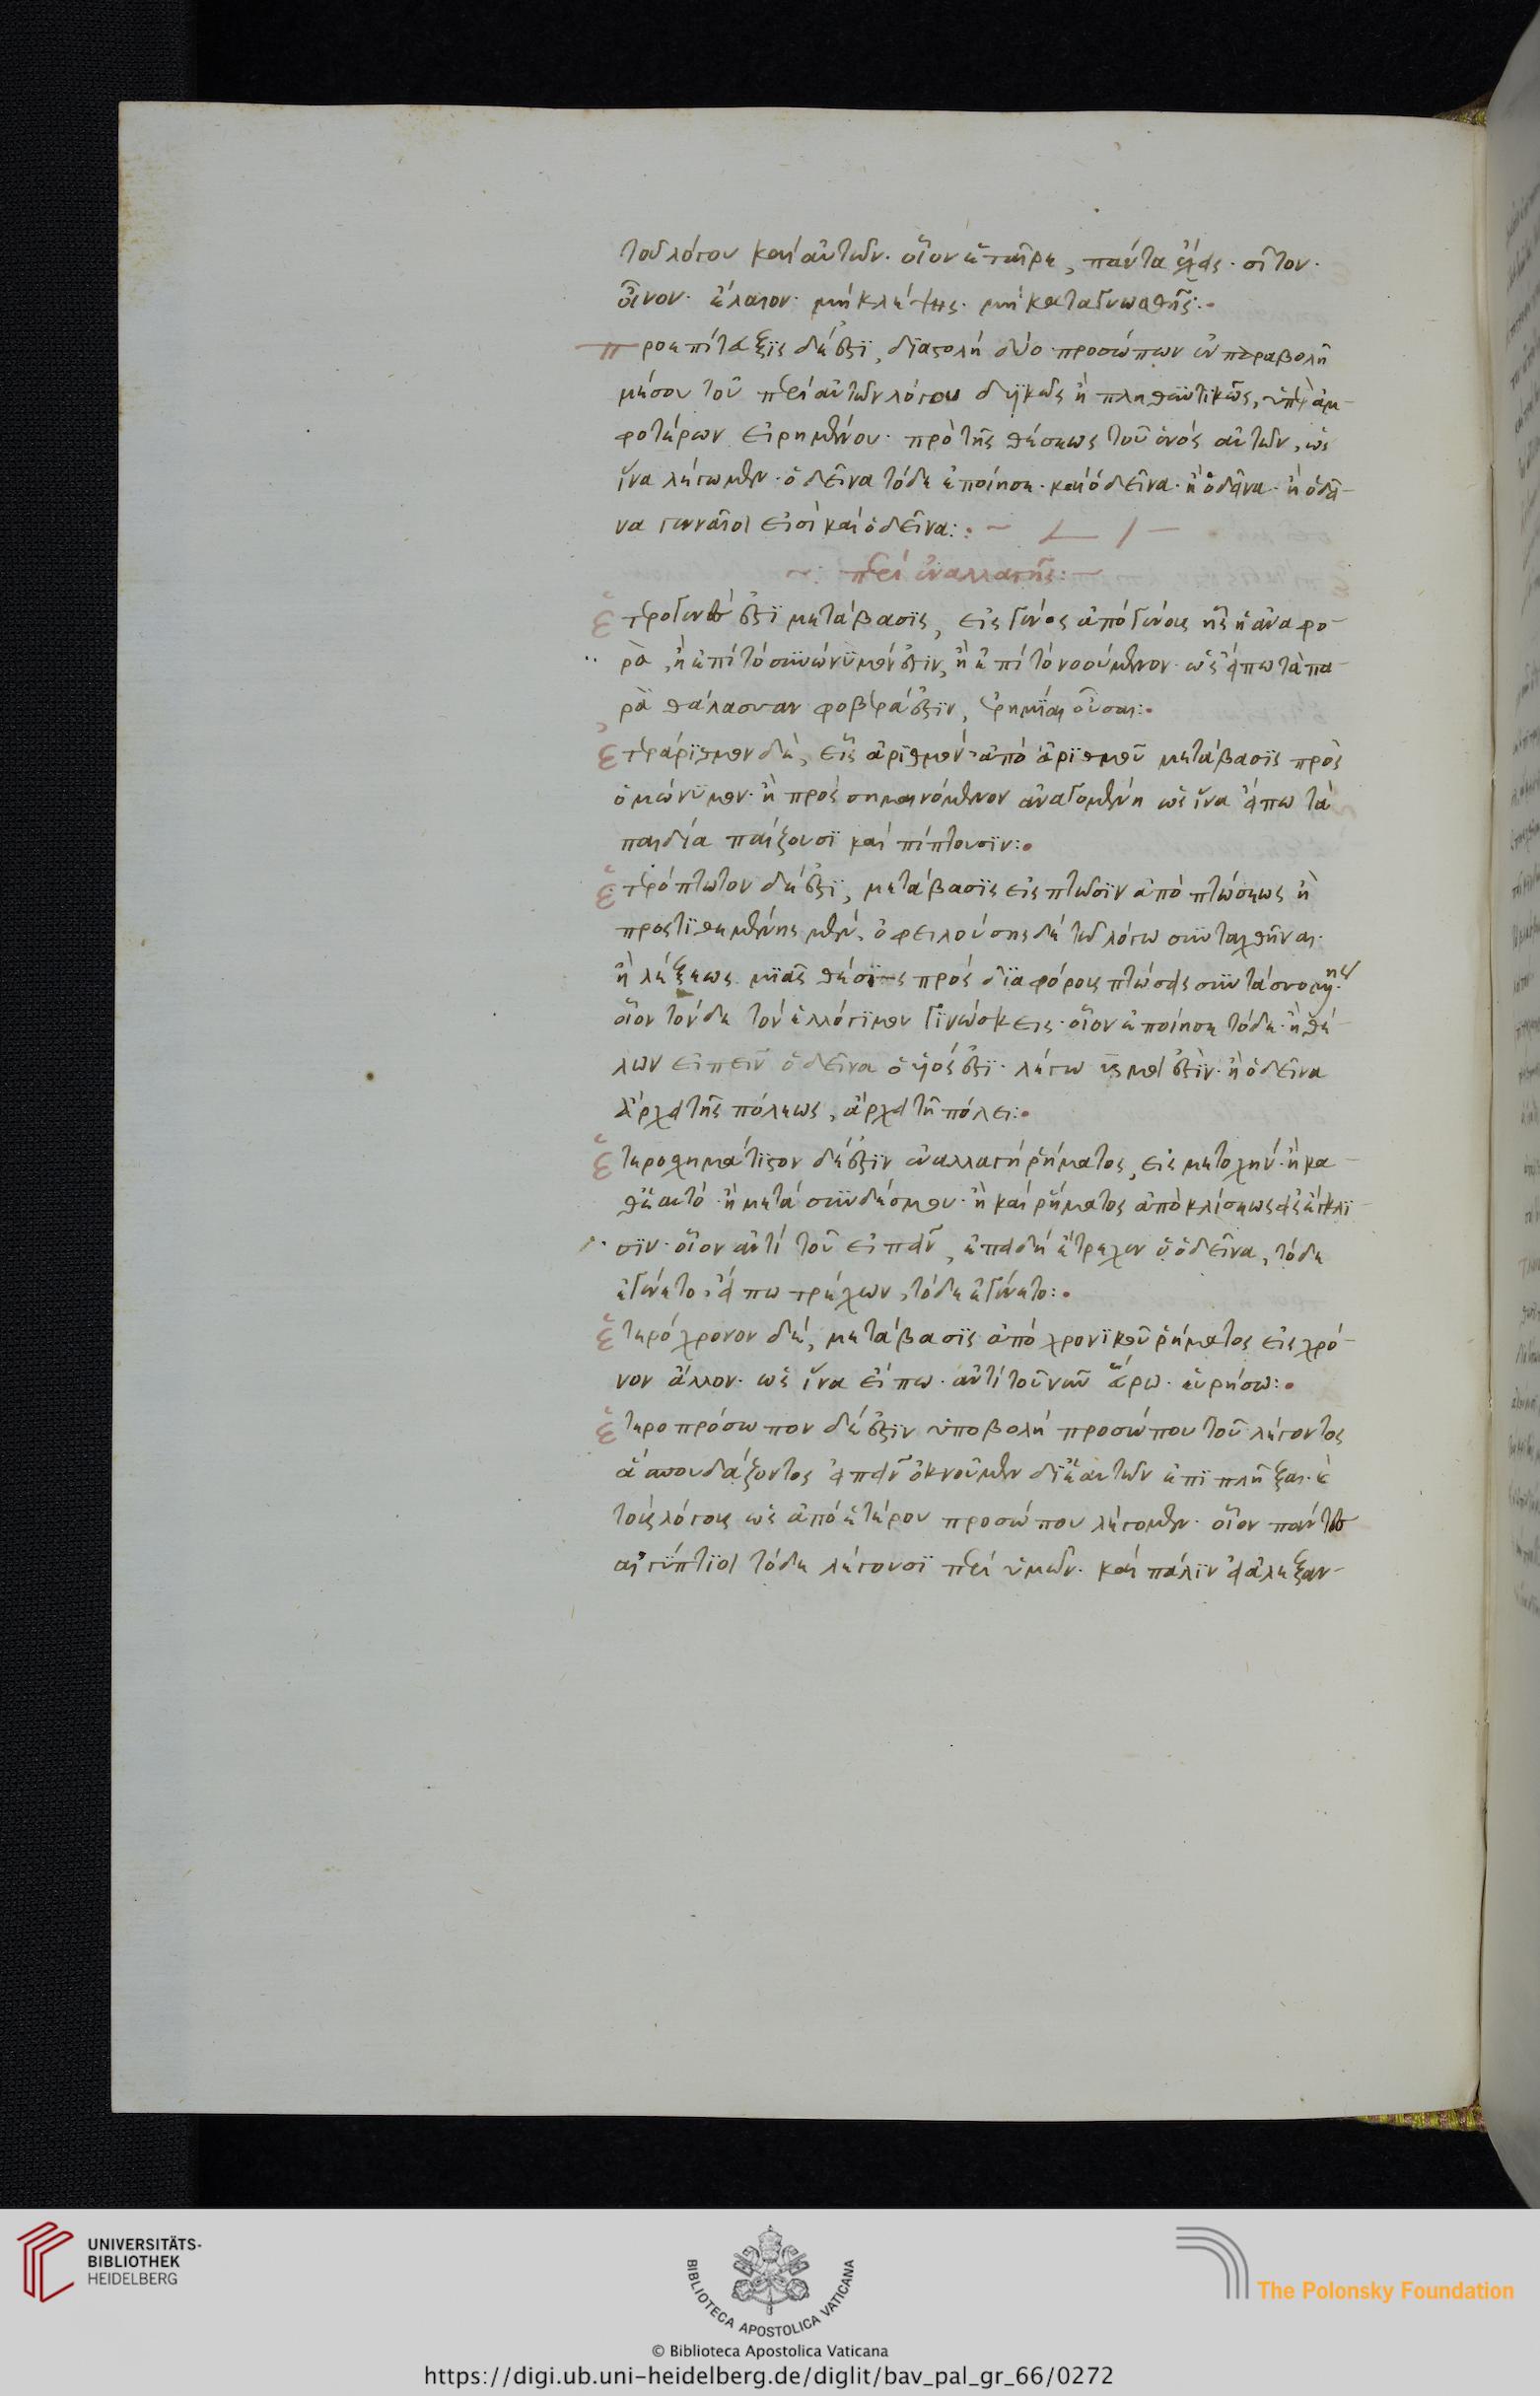 τοῦ λόγου καὶ αὐτῶν· οἷον ἑταῖρε, πάντα ἔχεις· σῖτον·
οἶνον· ἔλαιον· μὴ κλέψῃς· μὴ καταγνωσθῇς:
προεπίταξις δέ ἐστι, διαστολὴ δύο προσώπων ἐν παραβολῇ
μέσου τοῦ περὶ αὐτῶν λόγου δυϊκῶς ἢ πληθυντικῶς, ὑπὲρ ἀμ-
φοτέρων εἰρημένου· πρὸ τῆς θέσεως τοῦ ἑνὸς αὐτῶν, ὡς
ἵνα λέγωμεν· ὁ δεῖνα τόδε ἐποίησε· καὶ ὁ δεῖνα· ἢ ὁ δεῖνα· ἢ ὁ δεῖ-
να γενναῖοι εἰσὶ καὶ ὁ δεῖνα:
περὶ ἐναλλαγῆς:
ἑτρογενές ἐστι μετάβασις, εἰς γένος ἀπὸ γένους ἧς ἡ ἀναφο-
ρὰ, ἢ ἐπὶ τὸ συνώνυμόν ἐστιν, ἢ ἐπὶ τὸ νοούμενον· ὡς εἴπω τὰ πα-
ρὰ θάλασσαν φοβερά ἐστιν, ἐρημίαι οὖσαι:
ἑτεράριθμον δὲ, εἰς ἀριθμὸν ἀπὸ ἀριθμοῦ μετάβασις πρὸς
ὁμώνυμον· ἢ πρὸς σημαινόμενον ἀναγομένη ὡς ἵνα εἴπω τὰ
παιδία παίζουσι καὶ πίπτουσιν:
ἑτερόπτωτον δέ ἐστι, μετάβασις εἰς πτῶσιν ἀπὸ πτώσεως ἢ
προστιθεμένης μὲν, ὀφειλούσης δὲ τῷ λόγω συνταχθῆναι·
ἢ λέξεως μιᾶς θέσις πρὸς διαφόρους πτώσεις συντάσσο
οἷον τόνδε τὸν ἐλλόγιμον γινώσκεις· οἷον ἐποίησε τόδε· ἢ θέ-
λων εἰπεῖν ὁ δεῖνα ὁ υἱός ἐστι· λέγω υἱός μοί ἐστὶν· ἢ ὁ δεῖνα
ἄρχει τῆς πόλεως, ἄρχει τῇ πόλει:
ἑτεροσχημάτιστον δέ ἐστιν ἐναλλαγὴ ῥήματος, εἰς μετοχήν· ἢ κα-
θ' ἑαυτὸ· ἢ μετὰ συνδέσμου· ἢ καὶ ῥήματος ἀπὸ κλίσεως εἰς ἔγκλι-
σιν· οἷον ἀντὶ τοῦ εἰπεῖν, ἐπειδὴ ἔτρεχεν ὁ ὁ δεῖνα, τόδε
ἐγένετο, εἴπω τρέχων, τόδε ἐγένετο:
ἑτερόχρονον δὲ, μετάβασις ἀπὸ χρονικοῦ ῥήματος εἰς χρό-
νον ἄλλον· ὡς ἵνα εἴπω· ἀντὶ τοῦ νῦν εὕρω· εὑρήσω:
ἑτεροπρόσωπον δέ ἐστιν ὑποβολὴ προσώπου τοῦ λέγοντος
ἃ σπουδάζοντος εἰπεῖν ὀκνοῦμεν δι' ἑαυτῶν ἐπιπλῆξαι·
τοὺς λόγους ὡς ἀπὸ ἑτέρου προσώπου λέγομεν· οἷον πάντες
αἰγύπτιοι τόδε λέγουσι περὶ ὑμῶν· καὶ πάλιν εἰ ἀλεξαν-
UNIVERSITÄTS-
BIBLIOTHEK
HEIDELBERG
BIBLIOTECA APOSTOLICA VATICANA
The Polonsky Foundation
© Biblioteca Apostolica Vaticana
https://digi.ub.uni-heidelberg.de/diglit/bav_pal_gr_66/0272